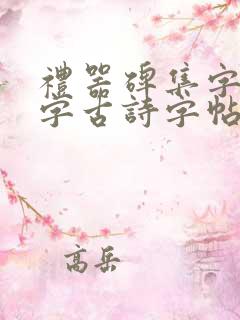 禮器碑集字
字古詩字帖
高岳